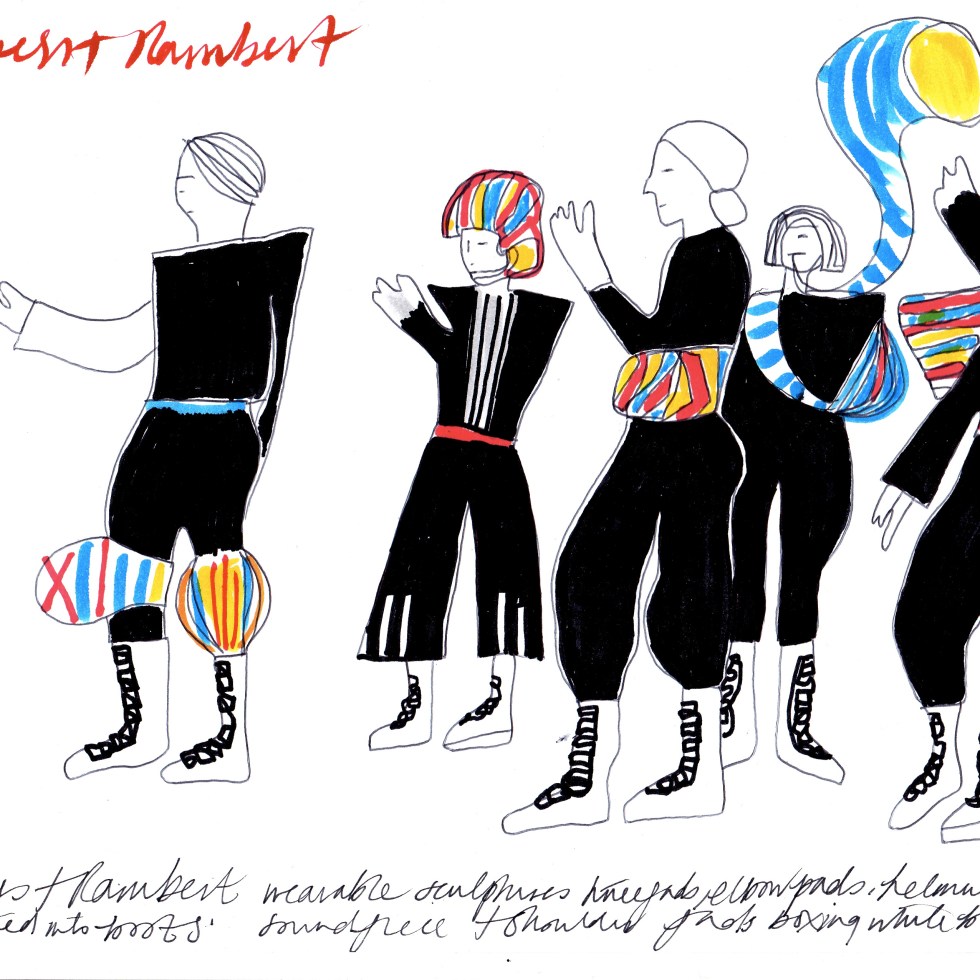 + Rambert
+ Rambert wearable sculptures kneepads, elbowpads, helm
ted into boots. soundpiece + shoulder pads boxing white